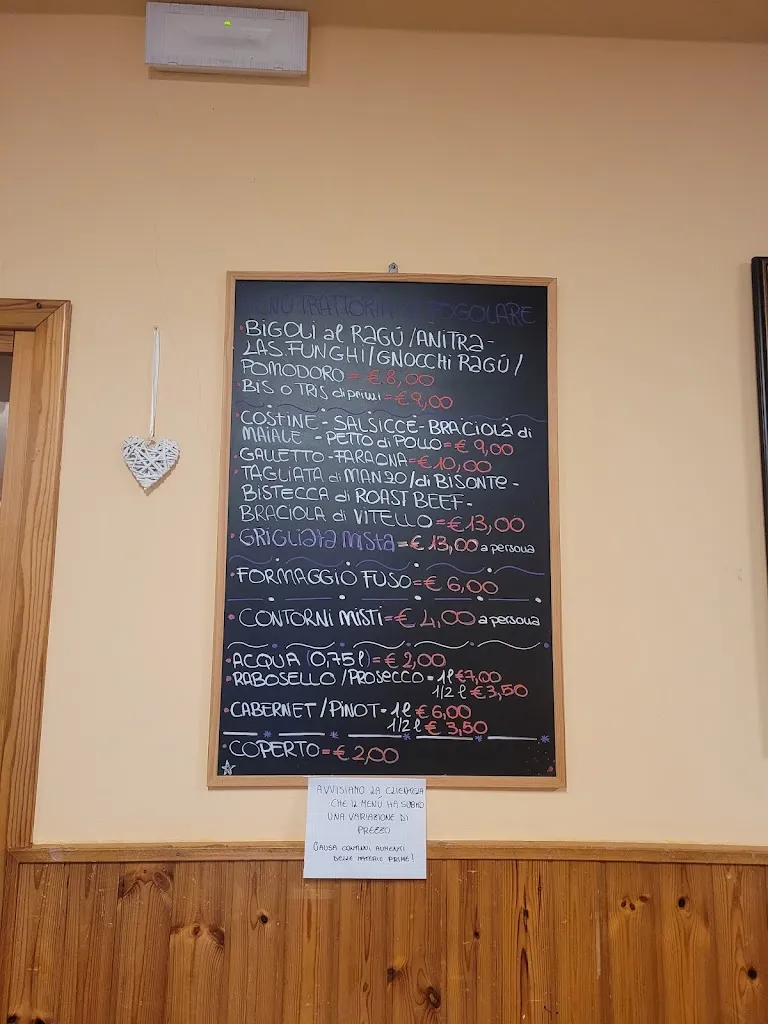 MENÙ TRATTORIA FOGOLARE
• BIGOLI al RAGÚ / ANITRA -
LAS. FUNGHI / GNOCCHI RAGÚ /
POMODORO = € 8,00
• BIS O TRIS di primi = € 9,00
• COSTINE - SALSICCE - BRACIOLA di
MAIALE - PETTO di POLLO = € 9,00
• GALLETTO - FARAONA = € 10,00
• TAGLIATA di MANZO / di BISONTE -
BISTECCA di ROAST BEEF -
BRACIOLA di VITELLO = € 13,00
• GRIGLIATA MISTA = € 13,00 a persona
• FORMAGGIO FUSO = € 6,00
• CONTORNI MISTI = € 4,00 a persona
• ACQUA (0,75 l) = € 2,00
• RABOSELLO / PROSECCO - 1 l € 7,00
1/2 l € 3,50
• CABERNET / PINOT - 1 l € 6,00
1/2 l € 3,50
• COPERTO = € 2,00
AVVISIAMO LA CLIENTELA
CHE IL MENÚ HA SUBITO
UNA VARIAZIONE DI
PREZZO
CAUSA CONTINUI AUMENTI
DELLE MATERIE PRIME!